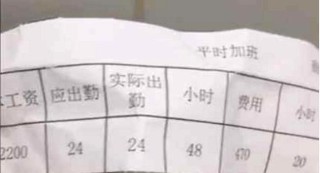 平时加班
工资 应出勤 实际出勤 小时 费用 小时
2200 24 24 48 470 20